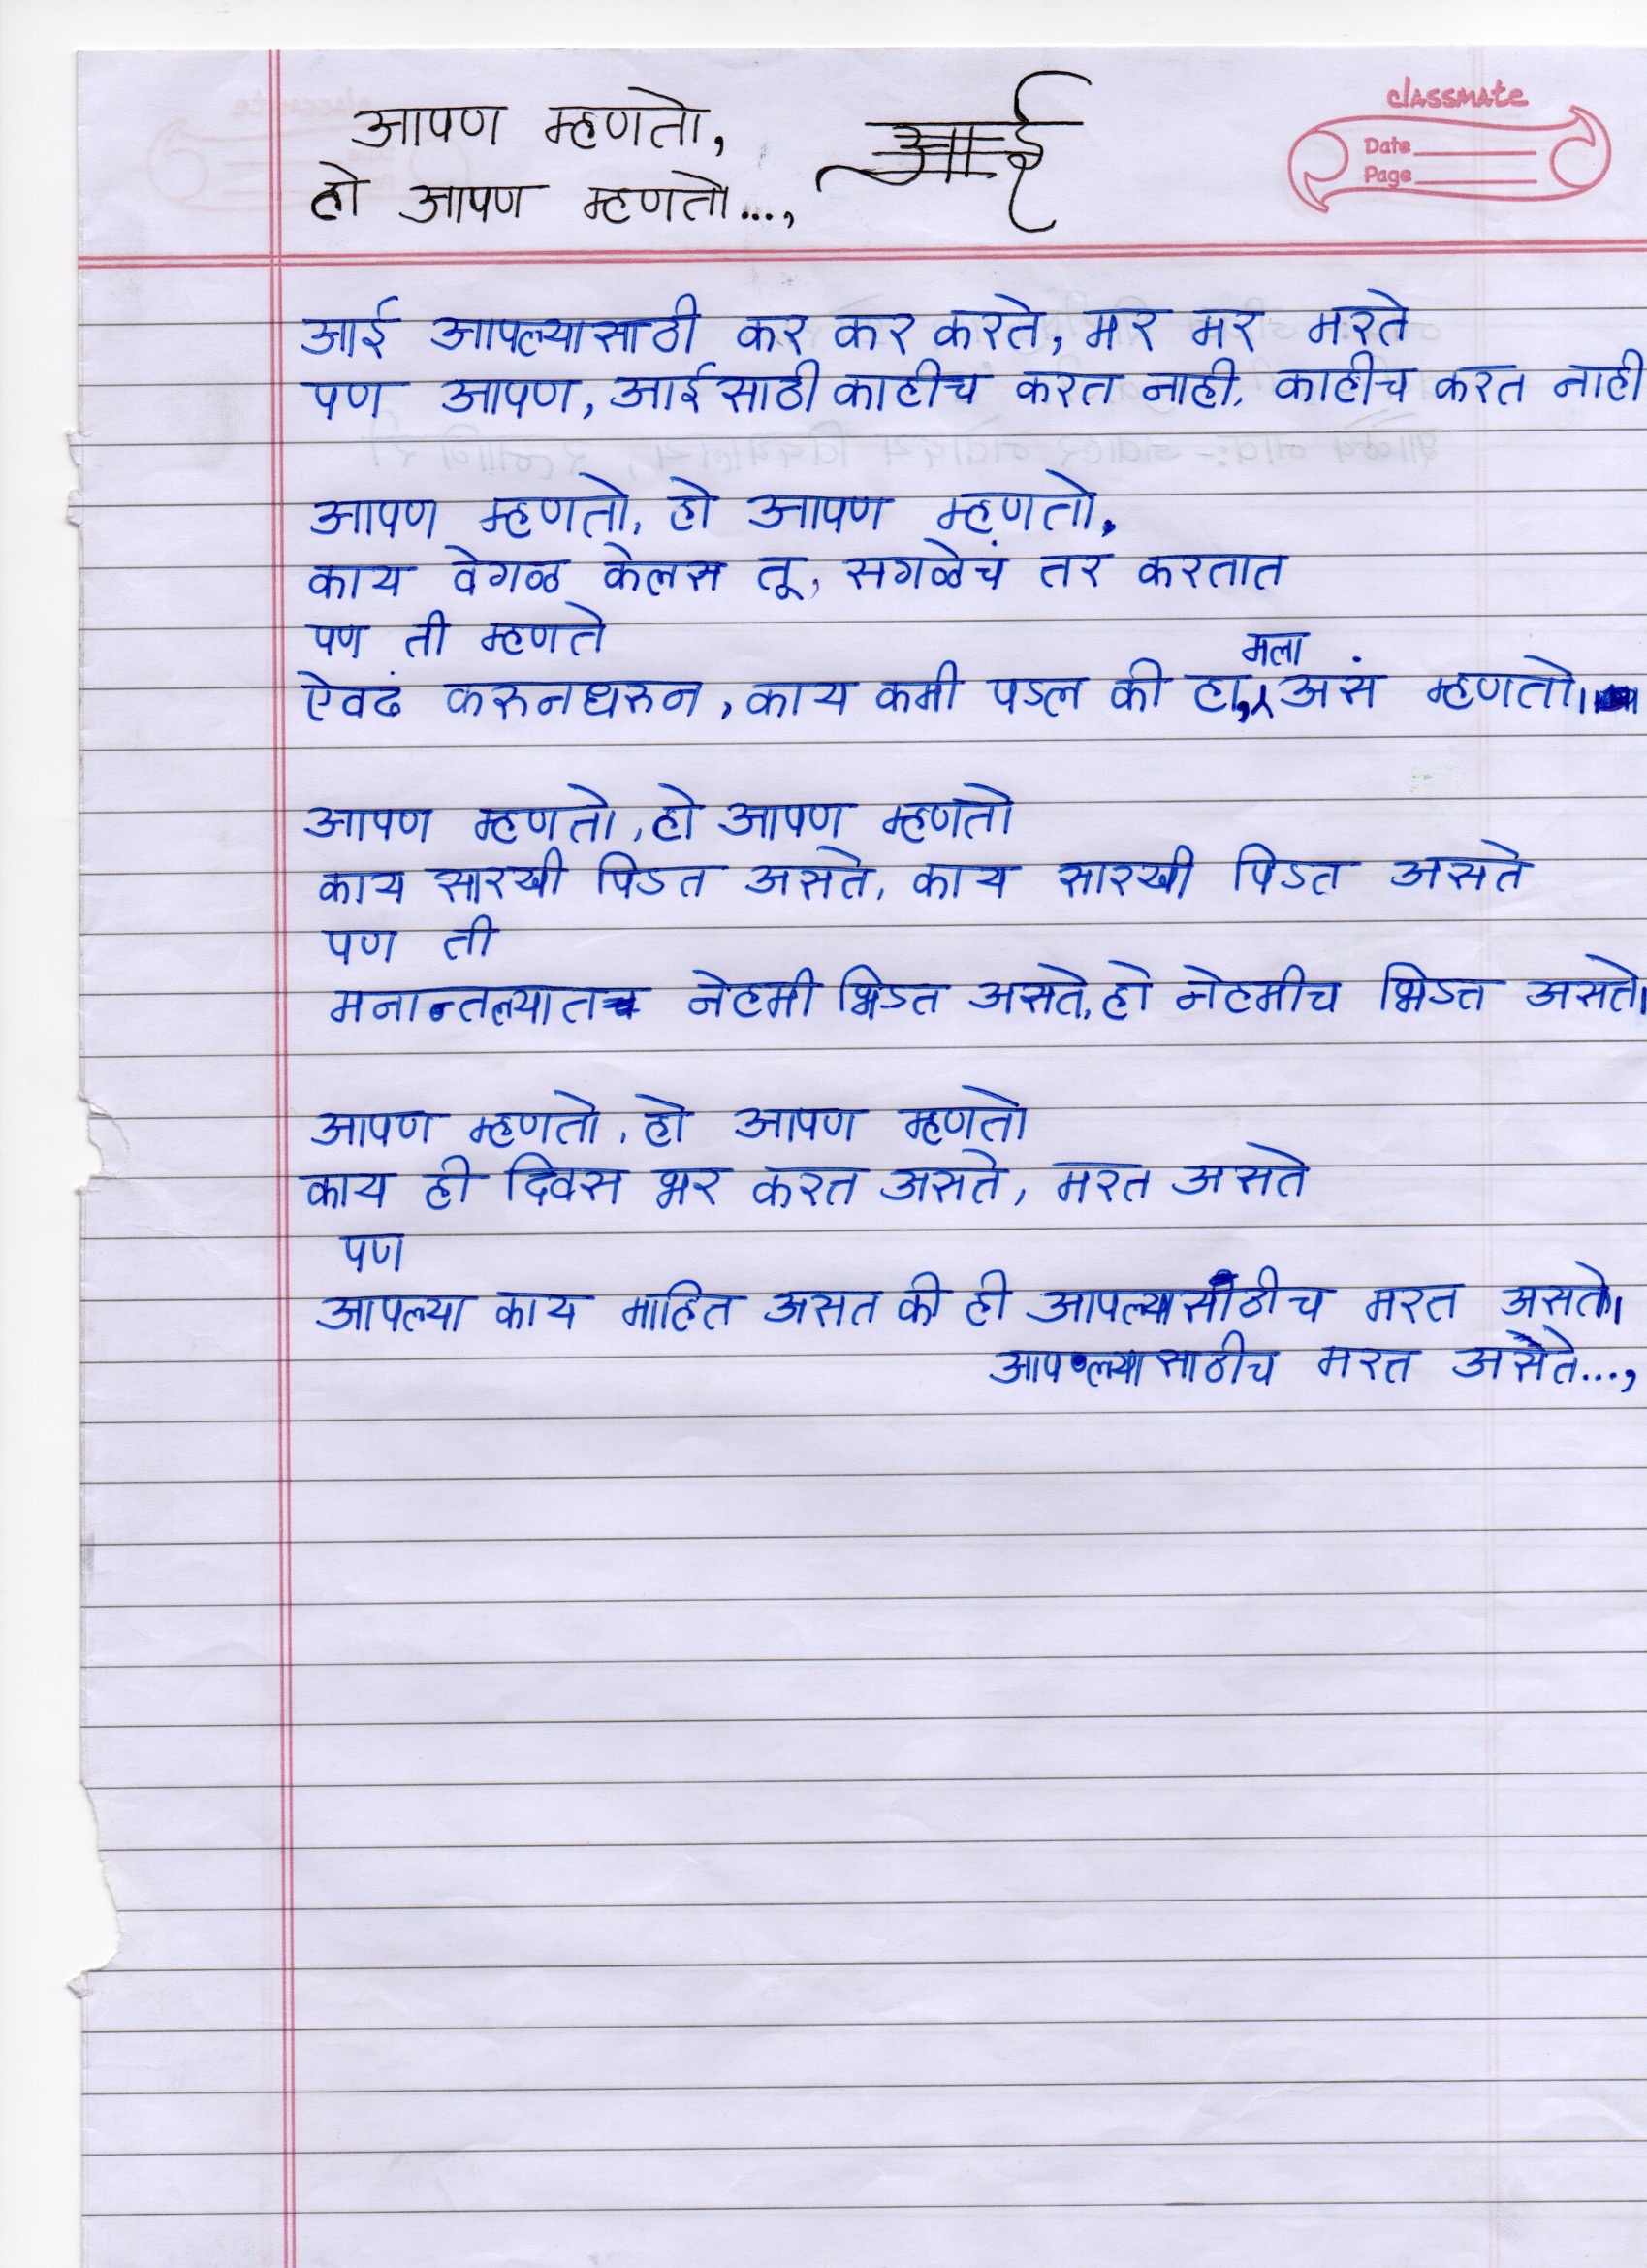 आपण म्हणतो,
हो आपण म्हणतो...,
आई
classmate
Date
Page
आई आपल्यासाठी कर कर करते, मर मर मरते
पण आपण, आईसाठी काहीच करत नाही, काहीच करत नाही
आपण म्हणतो, हो आपण म्हणतो,
काय वेगळ केलस तू, सगळेचं तर करतात
पण ती म्हणते
ऐवढं करुनधरुन, काय कमी पडल की हा, मला असं म्हणतो।
आपण म्हणतो, हो आपण म्हणतो
काय सारखी पिडत असते, काय सारखी पिडत असते
पण ती
मनातल्यात नेहमी भिडत असते, हो नेहमीच भिडत असते।
आपण म्हणतो, हो आपण म्हणतो
काय ही दिवस भर करत असते, मरत असते
पण
आपल्या काय माहित असत की ही आपल्यासाठीच मरत असते।
आपल्यासाठीच मरत असते...,